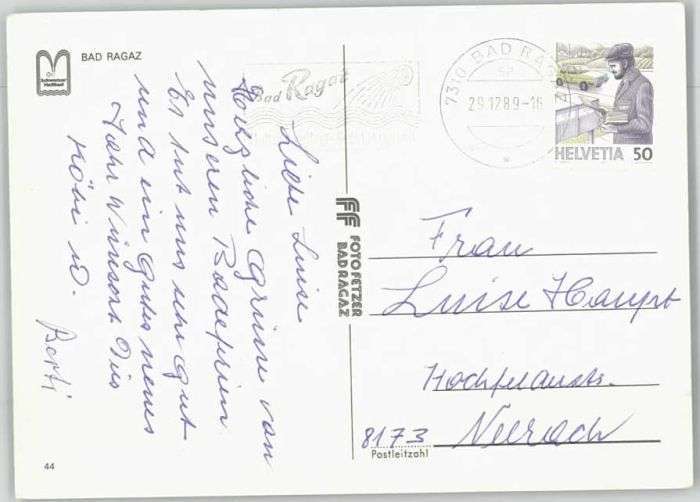 BAD RAGAZ
Schweizer Heilbad
Bad Ragaz
7310 BAD RAGAZ
29.12.89-16
HELVETIA 50
Liebe Luise
Herzliche Grüsse von
unseren Badeferien
Es tut uns sehr gut
und ein gutes neues
Jahr wünscht Dir
Köbi u.
Berti
FF FOTO FETZER
BAD RAGAZ
Frau
Luise Haupt
8173 Neerach
Postleitzahl
44